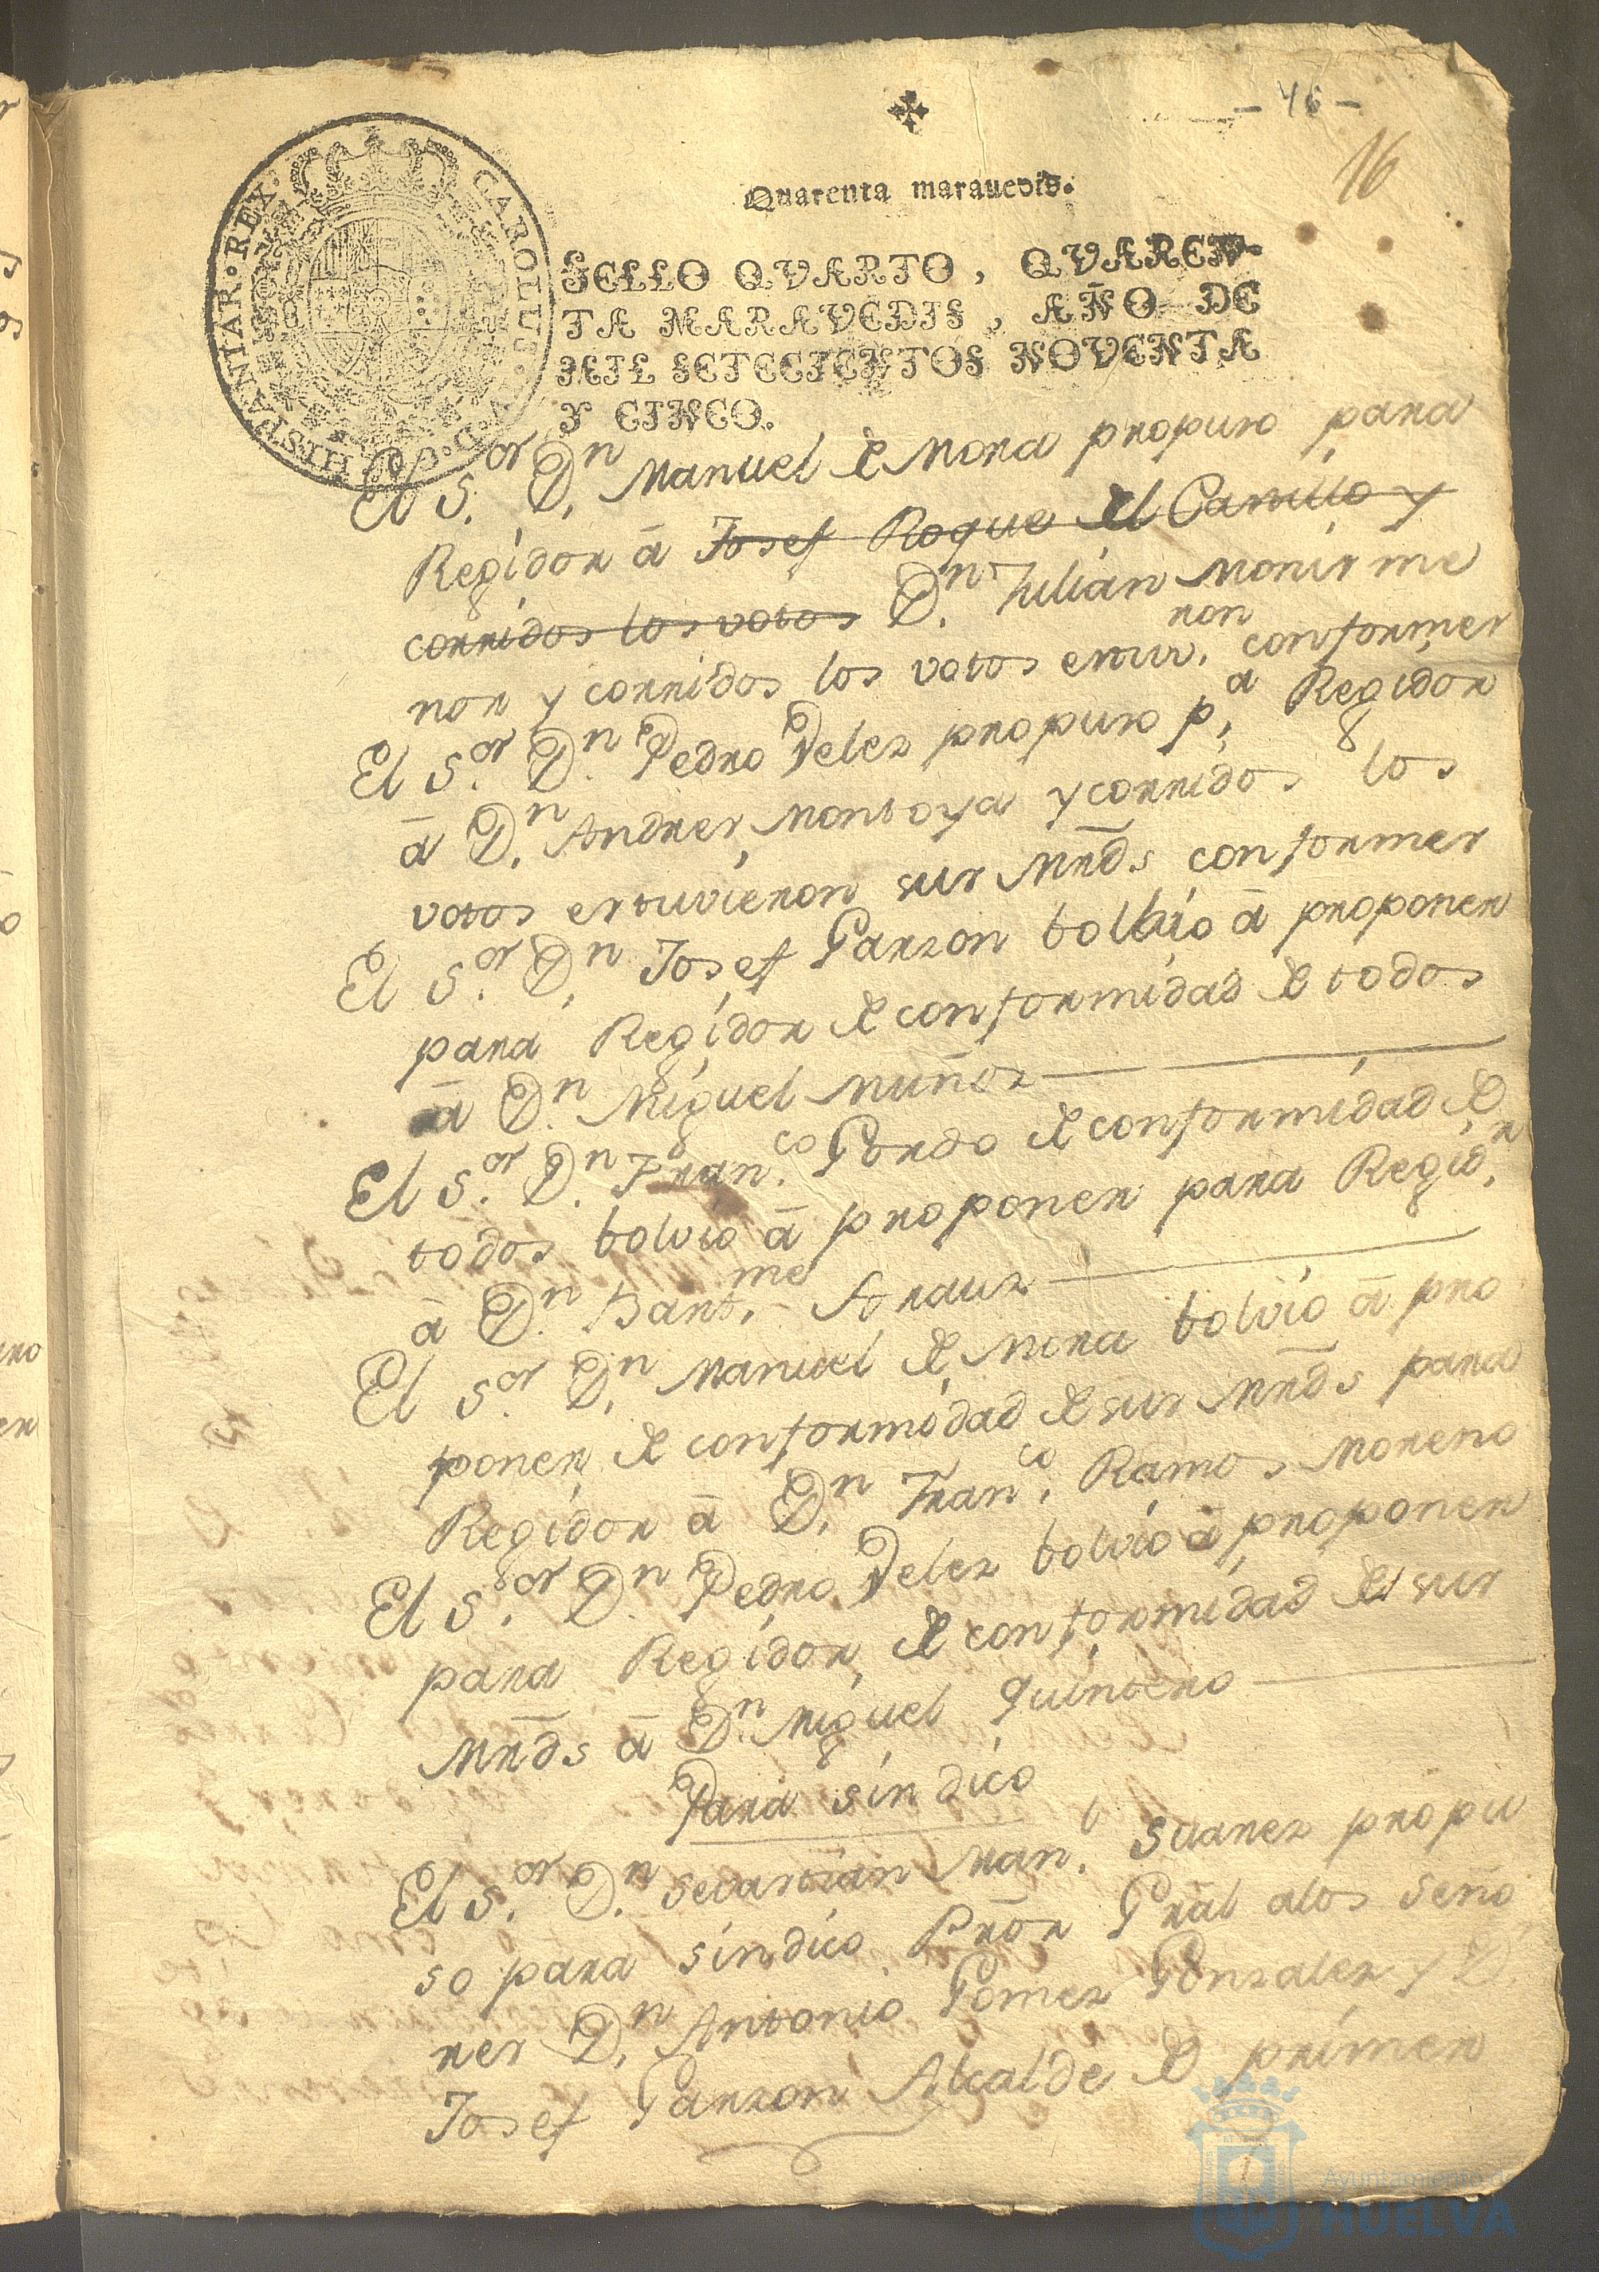 - 46 -
16
Quarenta marauedis.
SELLO QVARTO, QVAREN-
TA MARAVEDIS, AÑO DE
MIL SETECIENTOS NOVENTA
Y CINCO.
CAROLUS D. G. HISPANIAR. REX.
El S.or D.n Manuel de Mora propuso para
Regidor â Josef Roque el Carrillo y
corridos los votos D.n Julian Monis me
nor y corridos los votos estuv.ron conformes
El S.or D.n Pedro Velez propuso p.a Regidor
â D.n Andres Montoya y corridos los
votos estuvieron sus Mrds conformes
El S.or D.n Josef Garzon bolbio â proponer
para Regidor de conformidad de todos
â D.n Miguel Muñoz
El S.or D.n Fran.co Gordo de conformidad de
todos bolvio â proponer para Regid.r
â D.n Bart.me Arauz
El S.or D.n Manuel de Mora bolvio â pro
poner de conformidad de sus Mrds para
Regidor â D.n Fran.co Ramos Moreno
El S.or D.n Pedro Velez bolvio â proponer
para Regidor de conformidad de sus
Mrds â D.n Miguel Quintero
Para sindico
El S.or D.n Sevastian Man.l Suarez propu
so para sindico Prõr Grãl alos Seño
res D.n Antonio Gomez Gonzalez y D.n
Josef Garzon Alcalde de primer
Ayuntamiento de
HUELVA